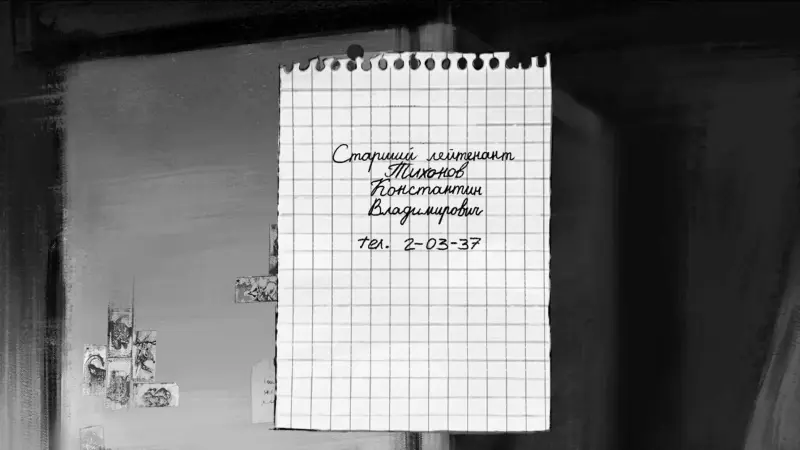 Старший лейтенант
Тихонов
Константин
Владимирович
тел. 2-03-37